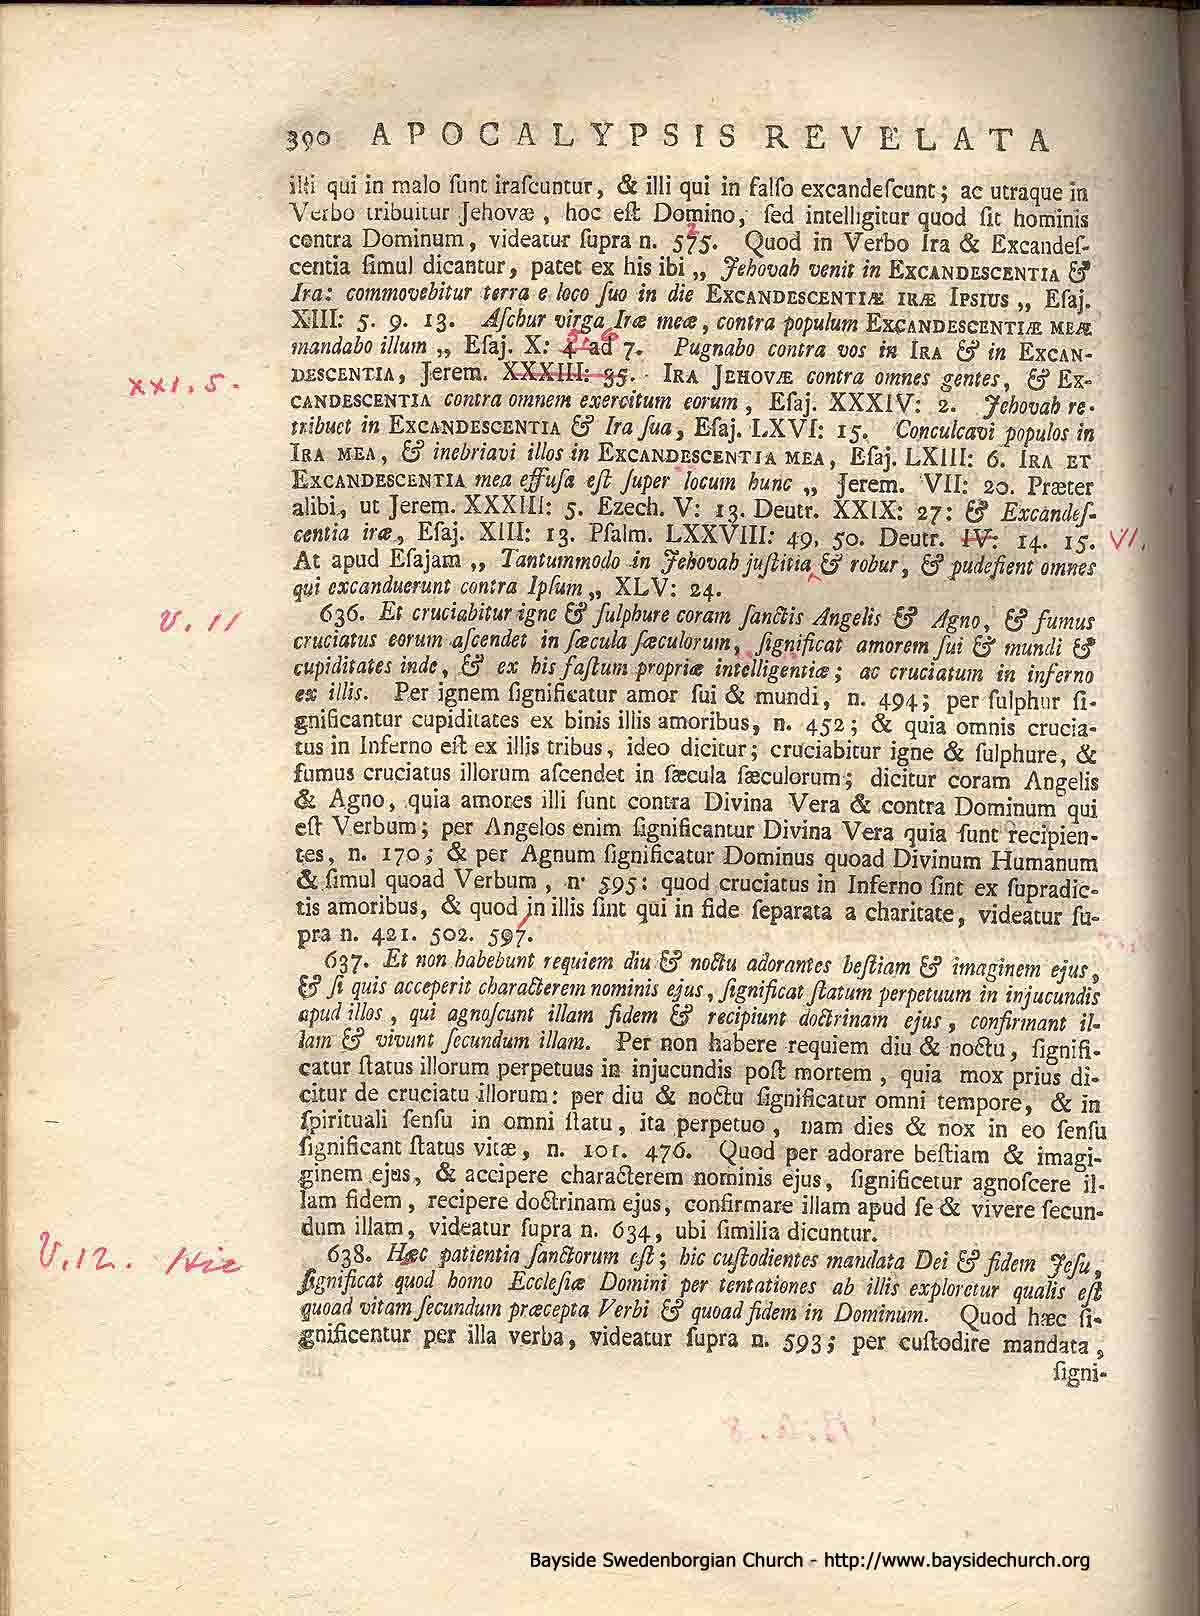 390 APOCALYPSIS REVELATA
illi qui in malo ſunt iraſcuntur, & illi qui in falſo excandeſcunt; ac utraque in
Verbo tribuitur Jehovæ, hoc eſt Domino, ſed intelligitur quod ſit hominis
2
contra Dominum, videatur ſupra n. 575. Quod in Verbo Ira & Excandeſ-
centia ſimul dicantur, patet ex his ibi „ Jehovah venit in EXCANDESCENTIA &
Ira: commovebitur terra e loco ſuo in die EXCANDESCENTIÆ IRÆ IPSIUS „ Eſaj.
XIII: 5. 9. 13. Aſchur virga Iræ meæ, contra populum EXCANDESCENTIÆ MEÆ
5. 6
mandabo illum „ Eſaj. X: 4 ad 7. Pugnabo contra vos in IRA & in EXCAN-
XXI. 5. DESCENTIA, Jerem. XXXIII: 35. IRA JEHOVÆ contra omnes gentes, & EX-
CANDESCENTIA contra omnem exercitum eorum, Eſaj. XXXIV: 2. Jehovah re-
tribuet in EXCANDESCENTIA & Ira ſua, Eſaj. LXVI: 15. Conculcavi populos in
IRA MEA, & inebriavi illos in EXCANDESCENTIA MEA, Eſaj. LXIII: 6. IRA ET
EXCANDESCENTIA mea effuſa eſt ſuper locum hunc „ Jerem. VII: 20. Præter
alibi, ut Jerem. XXXIII: 5. Ezech. V: 13. Deutr. XXIX: 27: & Excandeſ-
centia iræ, Eſaj. XIII: 13. Pſalm. LXXVIII: 49, 50. Deutr. IV: 14. 15. VI.
At apud Eſajam „ Tantummodo in Jehovah juſtitia & robur, & pudefient omnes
qui excanduerunt contra Ipſum „ XLV: 24.
V. 11 636. Et cruciabitur igne & ſulphure coram ſanctis Angelis & Agno, & fumus
cruciatus eorum aſcendet in ſæcula ſæculorum, ſignificat amorem ſui & mundi &
cupiditates inde, & ex his faſtum propriæ intelligentiæ; ac cruciatum in inferno
ex illis. Per ignem ſignificatur amor ſui & mundi, n. 494; per ſulphur ſi-
gnificantur cupiditates ex binis illis amoribus, n. 452; & quia omnis crucia-
tus in Inferno eſt ex illis tribus, ideo dicitur; cruciabitur igne & ſulphure, &
fumus cruciatus illorum aſcendet in ſæcula ſæculorum; dicitur coram Angelis
& Agno, quia amores illi ſunt contra Divina Vera & contra Dominum qui
eſt Verbum; per Angelos enim ſignificantur Divina Vera quia ſunt recipien-
tes, n. 170; & per Agnum ſignificatur Dominus quoad Divinum Humanum
& ſimul quoad Verbum, n. 595: quod cruciatus in Inferno ſint ex ſupradic-
tis amoribus, & quod in illis ſint qui in fide ſeparata a charitate, videatur ſu-
pra n. 421. 502. 597.
637. Et non habebunt requiem diu & noctu adorantes beſtiam & imaginem ejus,
& ſi quis acceperit characterem nominis ejus, ſignificat ſtatum perpetuum in injucundis
apud illos, qui agnoſcunt illam fidem & recipiunt doctrinam ejus, confirmant il-
lam & vivunt ſecundum illam. Per non habere requiem diu & noctu, ſignifi-
catur ſtatus illorum perpetuus in injucundis poſt mortem, quia mox prius di-
citur de cruciatu illorum: per diu & noctu ſignificatur omni tempore, & in
ſpirituali ſenſu in omni ſtatu, ita perpetuo, nam dies & nox in eo ſenſu
ſignificant ſtatus vitæ, n. 101. 476. Quod per adorare beſtiam & imagi-
ginem ejus, & accipere characterem nominis ejus, ſignificetur agnoſcere il-
lam fidem, recipere doctrinam ejus, confirmare illam apud ſe & vivere ſecun-
dum illam, videatur ſupra n. 634, ubi ſimilia dicuntur.
V. 12. Hic 638. Hæc patientia ſanctorum eſt; hic cuſtodientes mandata Dei & fidem Jeſu,
ſignificat quod homo Eccleſiæ Domini per tentationes ab illis exploretur qualis eſt
quoad vitam ſecundum præcepta Verbi & quoad fidem in Dominum. Quod hæc ſi-
gnificentur per illa verba, videatur ſupra n. 593; per cuſtodire mandata,
ſigni-
Bayside Swedenborgian Church - http://www.baysidechurch.org